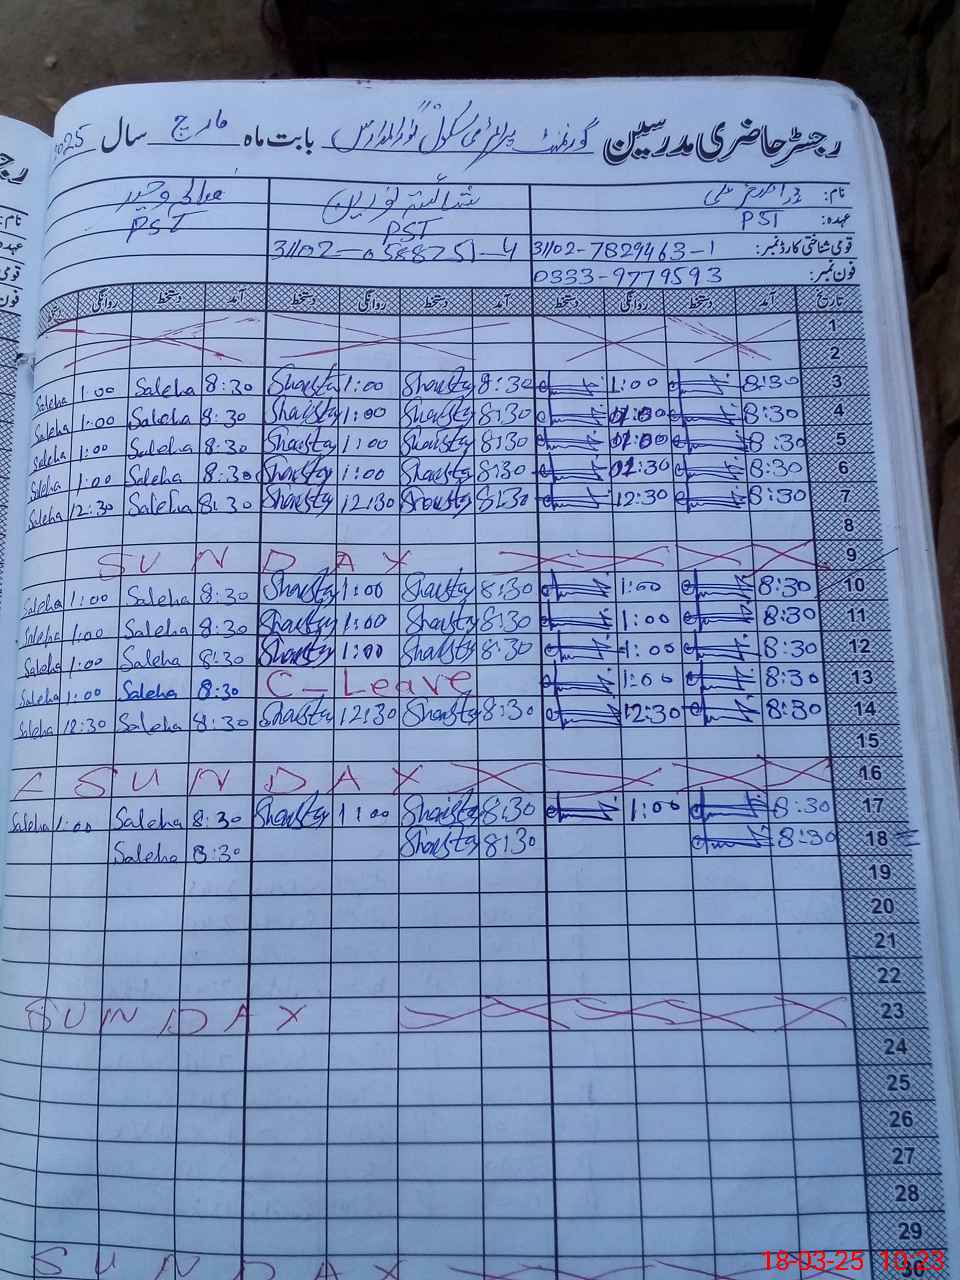 رجسٹر حاضری مدرسین گورنمنٹ پرائمری سکول بابت ماہ مارچ سال 2025
نام: شائستہ نورین
عہدہ: PST PST PST
قومی شناختی کارڈ نمبر: 31102-7829463-1 31102-0588751-4
فون نمبر: 0333-9779593
تاریخ آمد دستخط روانگی دستخط آمد دستخط روانگی دستخط آمد دستخط روانگی دستخط
1
2
Saleha 1:00 Saleha 8:30 Shaista 1:00 Shaista 8:30 1:00 8:30 3
Saleha 1:00 Saleha 8:30 Shaista 1:00 Shaista 8:30 01:00 8:30 4
Saleha 1:00 Saleha 8:30 Shaista 1:00 Shaista 8:30 01:00 8:30 5
Saleha 1:00 Saleha 8:30 Shaista 1:00 Shaista 8:30 8:30 6
Saleha 12:30 Saleha 8:30 Shaista 12:30 Shaista 8:30 12:30 8:30 7
8
SUNDAY 9
Saleha 1:00 Saleha 8:30 Shaista 1:00 Shaista 8:30 1:00 8:30 10
Saleha 1:00 Saleha 8:30 Shaista 1:00 Shaista 8:30 1:00 8:30 11
Saleha 1:00 Saleha 8:30 Shaista 1:00 Shaista 8:30 1:00 8:30 12
Saleha 1:00 Saleha 8:30 C-Leave 1:00 8:30 13
Saleha 12:30 Saleha 8:30 Shaista 12:30 Shaista 8:30 12:30 8:30 14
15
SUNDAY 16
Saleha 1:00 Saleha 8:30 Shaista 1:00 Shaista 8:30 1:00 8:30 17
Saleha 8:30 Shaista 8:30 8:30 18
19
20
21
22
SUNDAY 23
24
25
26
27
28
29
SUNDAY 30
18-03-25 10:23